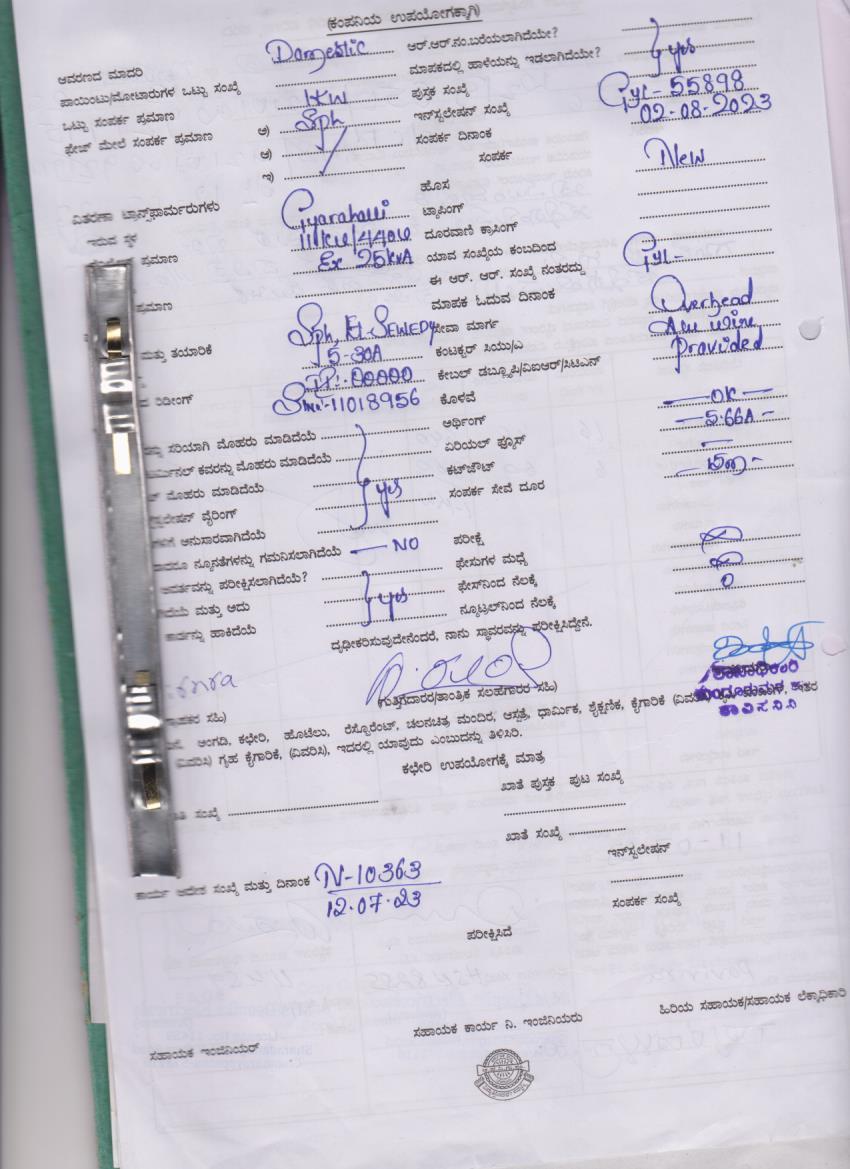 (ಕಂಪನಿಯ ಉಪಯೋಗಕ್ಕಾಗಿ)
ಆವರಣದ ಮಾದರಿ Domestic ಆರ್.ಆರ್.ನಂ.ಬರೆಯಲಾಗಿದೆಯೇ?
ಪಾಯಿಂಟು/ಮೋಟಾರುಗಳ ಒಟ್ಟು ಸಂಖ್ಯೆ ಮಾಪಕದಲ್ಲಿ ಹಾಳೆಯನ್ನು ಇಡಲಾಗಿದೆಯೇ? yes
ಒಟ್ಟು ಸಂಪರ್ಕ ಪ್ರಮಾಣ 1KW ಪುಸ್ತಕ ಸಂಖ್ಯೆ
ಫೇಜ್ ಮೇಲೆ ಸಂಪರ್ಕ ಪ್ರಮಾಣ ಅ) Sph ಇನ್‌ಸ್ಟಲೇಷನ್ ಸಂಖ್ಯೆ GYL-55898
ಆ) ಸಂಪರ್ಕ ದಿನಾಂಕ 02-08-2023
ಇ) ಸಂಪರ್ಕ
ವಿತರಣಾ ಟ್ರಾನ್ಸ್‌ಫಾರ್ಮರುಗಳು ಹೊಸ New
ಇರುವ ಸ್ಥಳ Gyarahalli ಟ್ಯಾಪಿಂಗ್
ಪ್ರಮಾಣ ದೂರವಾಣಿ ಕ್ರಾಸಿಂಗ್
Ex 25kVA ಯಾವ ಸಂಖ್ಯೆಯ ಕಂಬದಿಂದ
ಈ ಆರ್. ಆರ್. ಸಂಖ್ಯೆ ನಂತರದ್ದು GYL-
ಪ್ರಮಾಣ ಮಾಪಕ ಓದುವ ದಿನಾಂಕ
Sph, El-SEWEDY ಸೇವಾ ಮಾರ್ಗ Overhead
ಮತ್ತು ತಯಾರಿಕೆ 5-30A ಕಂಟಕ್ಟರ್ ಸಿಯು/ಎ Alu wire
00000 ಕೇಬಲ್ ಡಬ್ಲ್ಯೂಪಿ/ವಿಐಆರ್/ಸಿಟಿಎನ್ Provided
ದ ರಿಡೀಂಗ್ 11018956 ಕೊಳವೆ
ಅರ್ಥಿಂಗ್ - OK -
ನ್ನು ಸರಿಯಾಗಿ ಮೊಹರು ಮಾಡಿದೆಯೆ ಏರಿಯಲ್ ಫ್ಯೂಸ್ - 5.66A -
ರ್ಮಿನಲ್ ಕವರನ್ನು ಮೊಹರು ಮಾಡಿದೆಯೆ ಕಟ್‌ಔಟ್ -
ಮೊಹರು ಮಾಡಿದೆಯೆ yes ಸಂಪರ್ಕ ಸೇವೆ ದೂರ
ಲೇಷನ್ ವೈರಿಂಗ್
ಗಳಿಗೆ ಅನುಸಾರವಾಗಿದೆಯೆ
ದಾದರೂ ನ್ಯೂನತೆಗಳನ್ನು ಗಮನಿಸಲಾಗಿದೆಯೆ - NO ಪರೀಕ್ಷೆ
ಅವರ್ತವನ್ನು ಪರೀಕ್ಷಿಸಲಾಗಿದೆಯೆ? ಫೇಸುಗಳ ಮಧ್ಯೆ
ದೆಯೆ ಮತ್ತು ಅದು yes ಫೇಸ್‌ನಿಂದ ನೆಲಕ್ಕೆ
ಕಾರ್ಡನ್ನು ಹಾಕಿದೆಯೆ ನ್ಯೂಟ್ರಲ್‌ನಿಂದ ನೆಲಕ್ಕೆ 0
ದೃಢೀಕರಿಸುವುದೇನೆಂದರೆ, ನಾನು ಸ್ಥಾವರವನ್ನು ಪರೀಕ್ಷಿಸಿದ್ದೇನೆ.
(ಗುತ್ತಿಗೆದಾರರ/ತಾಂತ್ರಿಕ ಸಲಹೆಗಾರರ ಸಹಿ)
ಅಂಗಡಿ, ಕಛೇರಿ, ಹೊಟೆಲು, ರೆಸ್ಟೋರೆಂಟ್, ಚಲನಚಿತ್ರ ಮಂದಿರ, ಆಸ್ಪತ್ರೆ, ಧಾರ್ಮಿಕ, ಶೈಕ್ಷಣಿಕ, ಕೈಗಾರಿಕೆ
(ವಿವರಿಸಿ) ಗೃಹ ಕೈಗಾರಿಕೆ, (ವಿವರಿಸಿ), ಇದರಲ್ಲಿ ಯಾವುದು ಎಂಬುದನ್ನು ತಿಳಿಸಿರಿ.
ಕಛೇರಿ ಉಪಯೋಗಕ್ಕೆ ಮಾತ್ರ
ಖಾತೆ ಪುಸ್ತಕ ಪುಟ ಸಂಖ್ಯೆ
ತಿ ಸಂಖ್ಯೆ
ಖಾತೆ ಸಂಖ್ಯೆ
ಇನ್‌ಸ್ಟಲೇಷನ್
ಕಾರ್ಯ ಆದೇಶ ಸಂಖ್ಯೆ ಮತ್ತು ದಿನಾಂಕ N-10363
12.07.23 ಸಂಪರ್ಕ ಸಂಖ್ಯೆ
ಪರೀಕ್ಷಿಸಿದೆ
ಸಹಾಯಕ ಇಂಜಿನಿಯರ್ ಸಹಾಯಕ ಕಾರ್ಯ ನಿ. ಇಂಜಿನಿಯರು ಹಿರಿಯ ಸಹಾಯಕ/ಸಹಾಯಕ ಲೆಕ್ಕಾಧಿಕಾರಿ